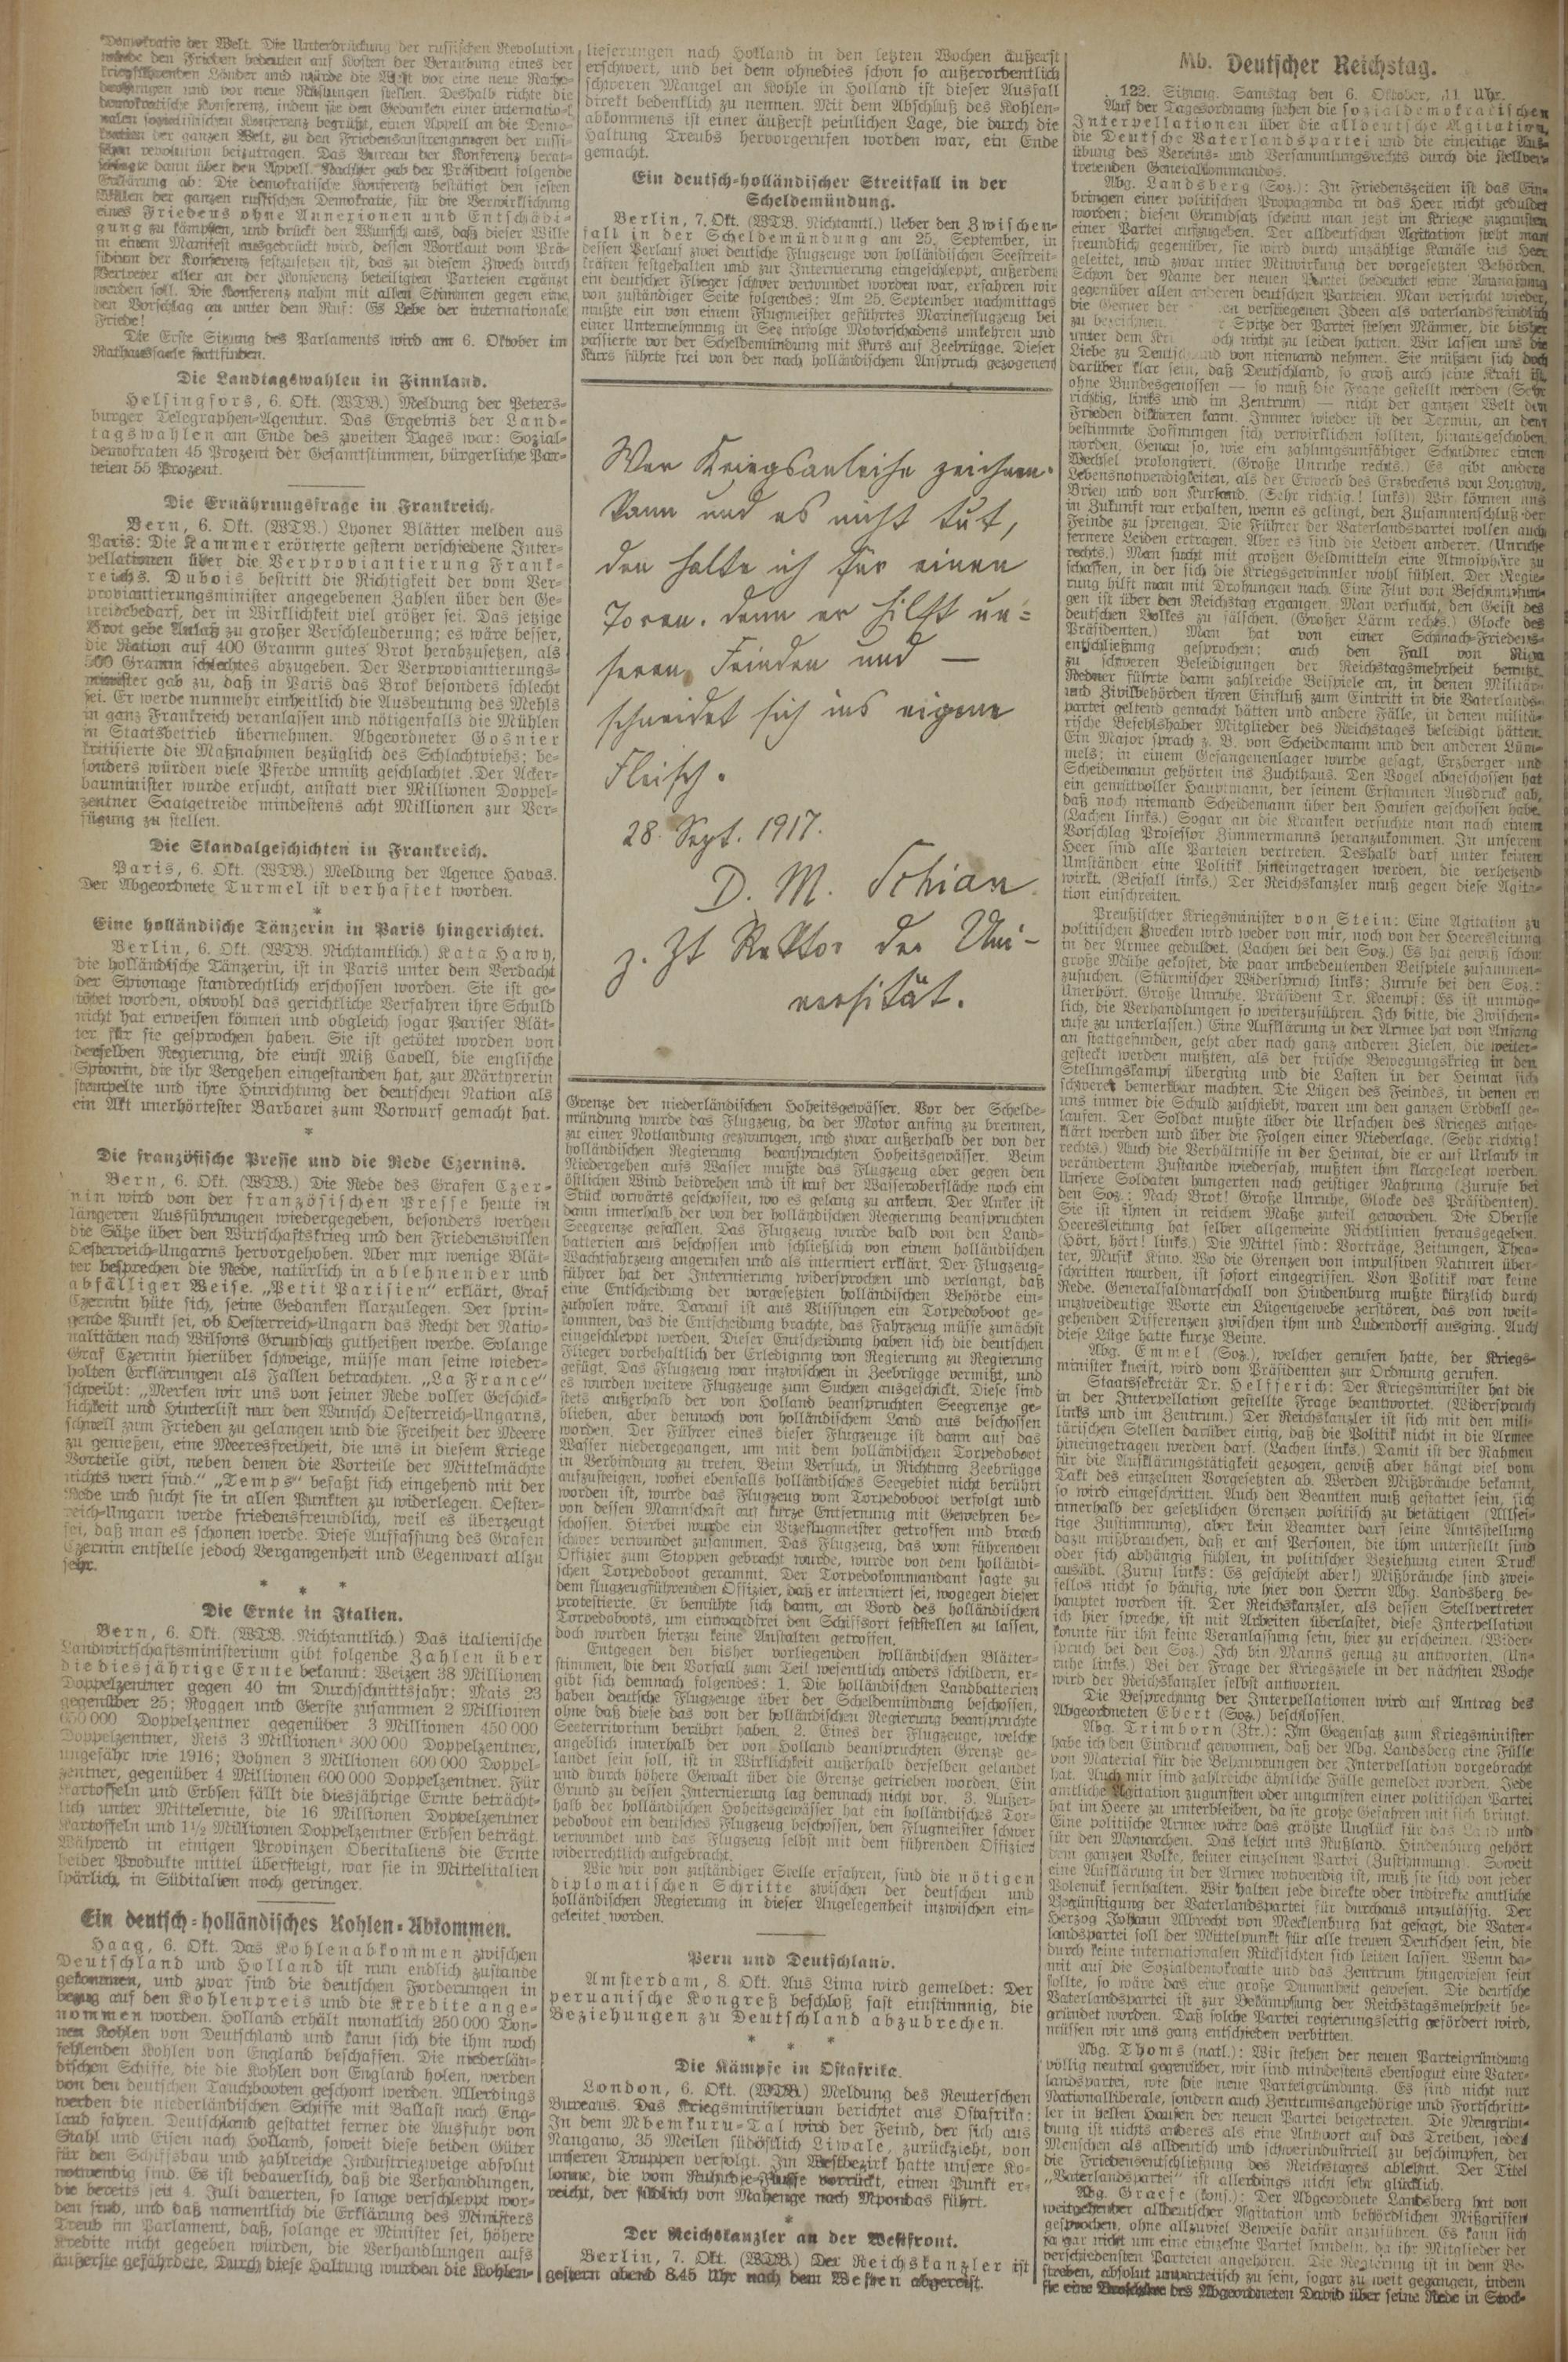 Demokratie der Welt. Die Unterdrückung der russischen Revolution
würde den Frieden bedeuten auf Kosten der Beraubung eines der
kriegführenden Länder und würde die Welt vor eine neue Rache-
und vor neue Rüstungen stellen. Deshalb richte die
demokratische Konferenz, indem sie den Gedanken einer internatio-
nalen sozialistischen Konferenz begrüßt, einen Appell an die Demo-
kratien der ganzen Welt, zu den Friedensanstrengungen der russi-
schen revolution beizutragen. Das Bureau der Konferenz berat-
schlagte dann über den Appell. Nachher gab der Präsident folgende
Erklärung ab: Die demokratische Konferenz bestätigt den festen
Willen der ganzen russischen Demokratie, für die Verwirklichung
eines Friedens ohne Annexionen und Entschädi-
gung zu kämpfen, und drückt den Wunsch aus, daß dieser Wille
in einem Manifest ausgedrückt wird, dessen Wortlaut vom Prä-
sidium der Konferenz festzusetzen ist, das zu diesem Zweck durch
Vertreter aller an der Konferenz beteiligten Parteien ergänzt
werden soll. Die Konferenz nahm mit allen Stimmen gegen eine,
den Vorschlag an unter dem Ruf: Es Lebe der internationale
Friede!
Die Erste Sitzung des Parlaments wird am 6. Oktober im
Rathaussaale stattfinden.
Die Landtagswahlen in Finnland.
Helsingfors, 6. Okt. (WTB.) Meldung der Peters-
burger Telegraphen-Agentur. Das Ergebnis der Land-
tagswahlen am Ende des zweiten Tages war: Sozial-
demokraten 45 Prozent der Gesamtstimmen, bürgerliche Par-
teien 55 Prozent.
Die Ernährungsfrage in Frankreich.
Bern, 6. Okt. (WTB.) Lyoner Blätter melden aus
Paris: Die Kammer erörterte gestern verschiedene Inter-
pellationen über die Verproviantierung Frank-
reichs. Dubois bestritt die Richtigkeit der vom Ver-
proviantierungsminister angegebenen Zahlen über den Ge-
treidebedarf, der in Wirklichkeit viel größer sei. Das jetzige
Brot gebe Anlaß zu großer Verschleuderung; es wäre besser,
die Nation auf 400 Gramm gutes Brot herabzusetzen, als
500 Gramm schlechtes abzugeben. Der Verproviantierungs-
minister gab zu, daß in Paris das Brot besonders schlecht
sei. Er werde nunmehr einheitlich die Ausbeutung des Mehls
in ganz Frankreich veranlassen und nötigenfalls die Mühlen
in Staatsbetrieb übernehmen. Abgeordneter Gosnier
kritisierte die Maßnahmen bezüglich des Schlachtviehs; be-
sonders würden viele Pferde unnütz geschlachtet. Der Acker-
bauminister wurde ersucht, anstatt vier Millionen Doppel-
zentner Saatgetreide mindestens acht Millionen zur Ver-
fügung zu stellen.
Die Skandalgeschichten in Frankreich.
Paris, 6. Okt. (WTB.) Meldung der Agence Havas.
Der Abgeordnete Turmel ist verhaftet worden.
*
Eine holländische Tänzerin in Paris hingerichtet.
Berlin, 6. Okt. (WTB. Nichtamtlich.) Kata Hawy,
die holländische Tänzerin, ist in Paris unter dem Verdacht
der Spionage standrechtlich erschossen worden. Sie ist ge-
tötet worden, obwohl das gerichtliche Verfahren ihre Schuld
nicht hat erweisen können und obgleich sogar Pariser Blät-
ter für sie gesprochen haben. Sie ist getötet worden von
derselben Regierung, die einst Miß Cavell, die englische
Spionin, die ihr Vergehen eingestanden hat, zur Märtyrerin
stempelte und ihre Hinrichtung der deutschen Nation als
ein Akt unerhörtester Barbarei zum Vorwurf gemacht hat.
*
Die französische Presse und die Rede Czernins.
Bern, 6. Okt. (WTB.) Die Rede des Grafen Czer-
nin wird von der französischen Presse heute in
längeren Ausführungen wiedergegeben, besonders werden
die Sätze über den Wirtschaftskrieg und den Friedenswillen
Oesterreich-Ungarns hervorgehoben. Aber nur wenige Blät-
ter besprechen die Rede, natürlich in ablehnender und
abfälliger Weise. „Petit Parisien“ erklärt, Graf
Czernin hüte sich, seine Gedanken klarzulegen. Der sprin-
gende Punkt sei, ob Oesterreich-Ungarn das Recht der Natio-
nalitäten nach Wilsons Grundsatz gutheißen werde. Solange
Graf Czernin hierüber schweige, müsse man seine wieder-
holten Erklärungen als Fallen betrachten. „La France“
schreibt: „Merken wir uns von seiner Rede voller Geschick-
lichkeit und Hinterlist nur den Wunsch Oesterreich-Ungarns,
schnell zum Frieden zu gelangen und die Freiheit der Meere
zu genießen, eine Meeresfreiheit, die uns in diesem Kriege
Vorteile gibt, neben denen die Vorteile der Mittelmächte
nichts wert sind.“ „Temps“ befaßt sich eingehend mit der
Rede und sucht sie in allen Punkten zu widerlegen. Oester-
reich-Ungarn werde friedensfreundlich, weil es überzeugt
sei, daß man es schonen werde. Diese Auffassung des Grafen
Czernin entstelle jedoch Vergangenheit und Gegenwart allzu
sehr.
* * *
Die Ernte in Italien.
Bern, 6. Okt. (WTB. Nichtamtlich.) Das italienische
Landwirtschaftsministerium gibt folgende Zahlen über
die diesjährige Ernte bekannt: Weizen 38 Millionen
Doppelzentner gegen 40 im Durchschnittsjahr; Mais 23
gegenüber 25; Roggen und Gerste zusammen 2 Millionen
650 000 Doppelzentner gegenüber 3 Millionen 450 000
Doppelzentner, Reis 3 Millionen 300 000 Doppelzentner,
ungefähr wie 1916; Bohnen 3 Millionen 600 000 Doppel-
zentner, gegenüber 4 Millionen 600 000 Doppelzentner. Für
Kartoffeln und Erbsen fällt die diesjährige Ernte beträcht-
lich unter Mittelernte, die 16 Millionen Doppelzentner
Kartoffeln und 1½ Millionen Doppelzentner Erbsen beträgt.
Während in einigen Provinzen Oberitaliens die Ernte
beider Produkte mittel übersteigt, war sie in Mittelitalien
spärlich, in Süditalien noch geringer.
Ein deutsch-holländisches Kohlen-Abkommen.
Haag, 6. Okt. Das Kohlenabkommen zwischen
Deutschland und Holland ist nun endlich zustande
gekommen, und zwar sind die deutschen Forderungen in
bezug auf den Kohlenpreis und die Kredite ange-
nommen worden. Holland erhält monatlich 250 000 Ton-
nen Kohlen von Deutschland und kann sich die ihm noch
fehlenden Kohlen von England beschaffen. Die niederlän-
dischen Schiffe, die die Kohlen von England holen, werden
von den deutschen Tauchbooten geschont werden. Allerdings
werden die niederländischen Schiffe mit Ballast nach Eng-
land fahren. Deutschland gestattet ferner die Ausfuhr von
Stahl und Eisen nach Holland, soweit diese beiden Güter
für den Schiffsbau und zahlreiche Industriezweige absolut
notwendig sind. Es ist bedauerlich, daß die Verhandlungen,
die bereits seit 4. Juli dauerten, so lange verschleppt wor-
den sind, und daß namentlich die Erklärung des Ministers
Treub im Parlament, daß, solange er Minister sei, höhere
Kredite nicht gegeben würden, die Verhandlungen aufs
äußerste gefährdete. Durch diese Haltung wurden die Kohlen-
lieferungen nach Holland in den letzten Wochen äußerst
erschwert, und bei dem ohnedies schon so außerordentlich
schweren Mangel an Kohle in Holland ist dieser Ausfall
direkt bedenklich zu nennen. Mit dem Abschluß des Kohlen-
abkommens ist einer äußerst peinlichen Lage, die durch die
Haltung Treubs hervorgerufen worden war, ein Ende
gemacht.
Ein deutsch-holländischer Streitfall in der
Scheldemündung.
Berlin, 7. Okt. (WTB. Nichtamtl.) Ueber den Zwischen-
fall in der Scheldemündung am 25. September, in
dessen Verlauf zwei deutsche Flugzeuge von holländischen Seestreit-
kräften festgehalten und zur Internierung eingeschleppt, außerdem
ein deutscher Flieger schwer verwundet worden war, erfahren wir
von zuständiger Seite folgendes: Am 25. September nachmittags
mußte ein von einem Flugmeister geführtes Marineflugzeug bei
einer Unternehmung in See infolge Motorschadens umkehren und
passierte vor der Scheldemündung mit Kurs auf Zeebrügge. Dieser
Kurs führte frei von der nach holländischem Anspruch gezogenen
Wer Kriegsanleihe zeichnen
kann und es nicht tut,
den halte ich für einen
Toren. Denn er hilft un-
seren Feinden und —
schneidet sich ins eigene
Fleisch.
28. Sept. 1917.
D. M. Schian
z. Zt Rektor der Uni-
versität.
Grenze der niederländischen Hoheitsgewässer. Vor der Schelde-
mündung wurde das Flugzeug, da der Motor anfing zu brennen,
zu einer Notlandung gezwungen, und zwar außerhalb der von der
holländischen Regierung beanspruchten Hoheitsgewässer. Beim
Niedergehen aufs Wasser mußte das Flugzeug aber gegen den
östlichen Wind beidrehen und ist auf der Wasseroberfläche noch ein
Stück vorwärts geschossen, wo es gelang zu ankern. Der Anker ist
dann innerhalb der von der holländischen Regierung beanspruchten
Seegrenze gefallen. Das Flugzeug wurde bald von den Land-
batterien aus beschossen und schließlich von einem holländischen
Wachtfahrzeug angerufen und als interniert erklärt. Der Flugzeug-
führer hat der Internierung widersprochen und verlangt, daß
eine Entscheidung der vorgesetzten holländischen Behörde ein-
zuholen wäre. Darauf ist aus Vlissingen ein Torpedoboot ge-
kommen, das die Entscheidung brachte, das Fahrzeug müsse zunächst
eingeschleppt werden. Dieser Entscheidung haben sich die deutschen
Flieger vorbehaltlich der Erledigung von Regierung zu Regierung
gefügt. Das Flugzeug war inzwischen in Zeebrügge vermißt, und
es wurden weitere Flugzeuge zum Suchen ausgeschickt. Diese sind
stets außerhalb der von Holland beanspruchten Seegrenze ge-
blieben, aber dennoch von holländischem Land aus beschossen
worden. Der Führer eines dieser Flugzeuge ist dann auf das
Wasser niedergegangen, um mit dem holländischen Torpedoboot
in Verbindung zu treten. Beim Versuch, in Richtung Zeebrügge
aufzusteigen, wobei ebenfalls holländisches Seegebiet nicht berührt
worden ist, wurde das Flugzeug vom Torpedoboot verfolgt und
von dessen Mannschaft auf kurze Entfernung mit Gewehren be-
schossen. Hierbei wurde ein Vizeflugmeister getroffen und brach
schwer verwundet zusammen. Das Flugzeug, das vom führenden
Offizier zum Stoppen gebracht wurde, wurde von dem holländi-
schen Torpedoboot gerammt. Der Torpedokommandant sagte zu
dem flugzeugführenden Offizier, daß er interniert sei, wogegen dieser
protestierte. Er bemühte sich dann, an Bord des holländischen
Torpedoboots, um einwandfrei den Schiffsort feststellen zu lassen,
doch wurden hierzu keine Anstalten getroffen.
Entgegen den bisher vorliegenden holländischen Blätter-
stimmen, die den Vorfall zum Teil wesentlich anders schildern, er-
gibt sich demnach folgendes: 1. Die holländischen Landbatterien
haben deutsche Flugzeuge über der Scheldemündung beschossen,
ohne daß diese das von der holländischen Regierung beanspruchte
Seeterritorium berührt haben. 2. Eines der Flugzeuge, welche
angeblich innerhalb der von Holland beanspruchten Grenze ge-
landet sein soll, ist in Wirklichkeit außerhalb derselben gelandet
und durch höhere Gewalt über die Grenze getrieben worden. Ein
Grund zu dessen Internierung lag demnach nicht vor. 3. Außer-
halb der holländischen Hoheitsgewässer hat ein holländisches Tor-
pedoboot ein deutsches Flugzeug beschossen, den Flugmeister schwer
verwundet und das Flugzeug selbst mit dem führenden Offizier
widerrechtlich aufgebracht.
Wie wir von zuständiger Stelle erfahren, sind die nötigen
diplomatischen Schritte zwischen der deutschen und
holländischen Regierung in dieser Angelegenheit inzwischen ein-
geleitet worden.
Peru und Deutschland.
Amsterdam, 8. Okt. Aus Lima wird gemeldet: Der
peruanische Kongreß beschloß fast einstimmig, die
Beziehungen zu Deutschland abzubrechen.
* * *
Die Kämpfe in Ostafrika.
London, 6. Okt. (WTB.) Meldung des Reuterschen
Bureaus. Das Kriegsministerium berichtet aus Ostafrika:
In dem Mbemkuru-Tal wird der Feind, der sich aus
Nangano, 35 Meilen südöstlich Liwale, zurückzieht, von
unseren Truppen verfolgt. Im Westbezirk hatte unsere Ko-
lonne, die vom Ruhudje-Flusse vorrückt, einen Punkt er-
reicht, der südlich von Mahenge nach Mpondas führt.
*
Der Reichskanzler an der Westfront.
Berlin, 7. Okt. (WTB.) Der Reichskanzler ist
gestern abend 8.45 Uhr nach dem Westen abgereist.
Mb. Deutscher Reichstag.
122. Sitzung. Samstag den 6. Oktober, 11 Uhr.
Auf der Tagesordnung stehen die sozialdemokratischen
Interpellationen über die alldeutsche Agitation,
die Deutsche Vaterlandspartei und die einseitige Aus-
übung des Vereins- und Versammlungsrechts durch die stellver-
tretenden Generalkommandos.
Abg. Landsberg (Soz.): In Friedenszeiten ist das Ein-
bringen einer politischen Propaganda in das Heer nicht geduldet
worden; diesen Grundsatz scheint man jetzt im Kriege zugunsten
einer Partei aufzugeben. Der alldeutschen Agitation steht man
freundlich gegenüber, sie wird durch unzählige Kanäle ins Heer
geleitet, und zwar unter Mitwirkung der vorgesetzten Behörden.
Schon der Name der neuen Partei bedeutet eine Anmaßung
gegenüber allen anderen deutschen Parteien. Man versucht wieder,
die Gegner der verstiegenen Ideen als vaterlandsfeindlich
zu bezeichnen. Spitze der Partei stehen Männer, die bisher
unter dem nicht zu leiden hatten. Wir lassen uns die
Liebe zu Deutschland von niemand nehmen. Sie müßten sich doch
darüber klar sein, daß Deutschland, so groß auch seine Kraft ist,
ohne Bundesgenossen — so muß die Frage gestellt werden (Sehr
richtig, links und im Zentrum) — nicht der ganzen Welt den
Frieden diktieren kann. Immer wieder ist der Termin, an dem
bestimmte Hoffnungen sich verwirklichen sollten, hinausgeschoben
worden. Genau so, wie ein zahlungsunfähiger Schuldner einen
Wechsel prolongiert. (Große Unruhe rechts.) Es gibt andere
Lebensnotwendigkeiten, als der Erwerb des Erzbeckens von Longwy,
Briey und von Kurland. (Sehr richtig! links)) Wir können uns
in Zukunft nur erhalten, wenn es gelingt, den Zusammenschluß der
Feinde zu sprengen. Die Führer der Vaterlandspartei wollen auch
fernere Leiden ertragen. Aber es sind die Leiden anderer. (Unruhe
rechts.) Man sucht mit großen Geldmitteln eine Atmosphäre zu
schaffen, in der sich die Kriegsgewinnler wohl fühlen. Der Regie-
rung hilft man mit Drohungen nach. Eine Flut von Beschimpfun-
gen ist über den Reichstag ergangen. Man versucht, den Geist des
deutschen Volkes zu fälschen. (Großer Lärm rechts.) Glocke des
Präsidenten.) Man hat von einer Schmach-Friedens-
entschließung gesprochen; auch den Fall von Riga
zu schweren Beleidigungen der Reichstagsmehrheit benutzt.
Redner führte dann zahlreiche Beispiele an, in denen Militär-
und Zivilbehörden ihren Einfluß zum Eintritt in die Vaterlands-
partei geltend gemacht hätten und andere Fälle, in denen militä-
rische Befehlshaber Mitglieder des Reichstages beleidigt hätten.
Ein Major sprach z. B. von Scheidemann und den anderen Lüm-
mels; in einem Gefangenenlager wurde gesagt, Erzberger und
Scheidemann gehörten ins Zuchthaus. Den Vogel abgeschossen hat
ein gemütvoller Hauptmann, der seinem Erstaunen Ausdruck gab,
daß noch niemand Scheidemann über den Haufen geschossen habe.
(Lachen links.) Sogar an die Kranken versuchte man nach einem
Vorschlag Professor Zimmermanns heranzukommen. In unserem
Heer sind alle Parteien vertreten. Deshalb darf unter keinen
Umständen eine Politik hineingetragen werden, die verhetzend
wirkt. (Beifall links.) Der Reichskanzler muß gegen diese Agita-
tion einschreiten.
Preußischer Kriegsminister von Stein: Eine Agitation zu
politischen Zwecken wird weder von mir, noch von der Heeresleitung
in der Armee geduldet. (Lachen bei den Soz.) Es hat gewiß schon
große Mühe gekostet, die paar unbedeutenden Beispiele zusammen-
zusuchen. (Stürmischer Widerspruch links; Zurufe bei den Soz.:
Unerhört. Große Unruhe. Präsident Dr. Kaempf: Es ist unmög-
lich, die Verhandlungen so weiterzuführen. Ich bitte, die Zwischen-
rufe zu unterlassen.) Eine Aufklärung in der Armee hat von Anfang
an stattgefunden, geht aber nach ganz anderen Zielen, die weiter-
gesteckt werden mußten, als der frische Bewegungskrieg in den
Stellungskampf überging und die Lasten in der Heimat sich
schwerer bemerkbar machten. Die Lügen des Feindes, in denen er
uns immer die Schuld zuschiebt, waren um den ganzen Erdball ge-
laufen. Der Soldat mußte über die Ursachen des Krieges aufge-
klärt werden und über die Folgen einer Niederlage. (Sehr richtig!
rechts.) Auch die Verhältnisse in der Heimat, die er auf Urlaub in
verändertem Zustande wiedersah, mußten ihm klargelegt werden.
Unsere Soldaten hungerten nach geistiger Nahrung (Zurufe bei
den Soz.: Nach Brot! Große Unruhe, Glocke des Präsidenten).
Sie ist ihnen in reichem Maße zuteil geworden. Die Oberste
Heeresleitung hat selber allgemeine Richtlinien herausgegeben.
(Hört, hört! links.) Die Mittel sind: Vorträge, Zeitungen, Thea-
ter, Musik Kino. Wo die Grenzen von impulsiven Naturen über-
schritten wurden, ist sofort eingegriffen. Von Politik war keine
Rede. Generalfeldmarschall von Hindenburg mußte kürzlich durch
unzweideutige Worte ein Lügengewebe zerstören, das von weit-
gehenden Differenzen zwischen ihm und Ludendorff ausging. Auch
diese Lüge hatte kurze Beine.
Abg. Emmel (Soz.), welcher gerufen hatte, der Kriegs-
minister kneift, wird vom Präsidenten zur Ordnung gerufen.
Staatssekretär Dr. Helfferich: Der Kriegsminister hat die
in der Interpellation gestellte Frage beantwortet. (Widerspruch
links und im Zentrum.) Der Reichskanzler ist sich mit den mili-
tärischen Stellen darüber einig, daß die Politik nicht in die Armee
hineingetragen werden darf. (Lachen links.) Damit ist der Rahmen
für die Aufklärungstätigkeit gezogen, gewiß aber hängt viel vom
Takt des einzelnen Vorgesetzten ab. Werden Mißbräuche bekannt,
so wird eingeschritten. Auch den Beamten muß gestattet sein, sich
innerhalb der gesetzlichen Grenzen politisch zu betätigen (Allsei-
tige Zustimmung), aber kein Beamter darf seine Amtsstellung
dazu mißbrauchen, daß er auf Personen, die ihm unterstellt sind
oder sich abhängig fühlen, in politischer Beziehung einen Druck
ausübt. (Zuruf links: Es geschieht aber!) Mißbräuche sind zwei-
fellos nicht so häufig, wie hier von Herrn Abg. Landsberg be-
hauptet worden ist. Der Reichskanzler, als dessen Stellvertreter
ich hier spreche, ist mit Arbeiten überlastet, diese Interpellation
konnte für ihn keine Veranlassung sein, hier zu erscheinen. (Wider-
spruch bei den Soz.) Ich bin Manns genug zu antworten. (Un-
ruhe links.) Bei der Frage der Kriegsziele in der nächsten Woche
wird der Reichskanzler selbst antworten.
Die Besprechung der Interpellationen wird auf Antrag des
Abgeordneten Ebert (Soz.) beschlossen.
Abg. Trimborn (Ztr.): Im Gegensatz zum Kriegsminister
habe ich den Eindruck gewonnen, daß der Abg. Landsberg eine Fülle
von Material für die Behauptungen der Interpellation vorgebracht
hat. Auch mir sind zahlreiche ähnliche Fälle gemeldet worden. Jede
amtliche Agitation zugunsten oder ungunsten einer politischen Partei
hat im Heere zu unterbleiben, da sie große Gefahren mit sich bringt.
Eine politische Armee wäre das größte Unglück für das Land und
für den Monarchen. Das lehrt uns Rußland. Hindenburg gehört
dem ganzen Volke, keiner einzelnen Partei (Zustimmung). Soweit
eine Aufklärung in der Armee notwendig ist, muß sie sich von jeder
Polemik fernhalten. Wir halten jede direkte oder indirekte amtliche
Begünstigung der Vaterlandspartei für durchaus unzulässig. Der
Herzog Johann Albrecht von Mecklenburg hat gesagt, die Vater-
landspartei soll der Mittelpunkt für alle treuen Deutschen sein, die
durch keine internationalen Rücksichten sich leiten lassen. Wenn da-
mit auf die Sozialdemokratie und das Zentrum hingewiesen sein
sollte, so wäre das eine große Dummheit gewesen. Die deutsche
Vaterlandspartei ist zur Bekämpfung der Reichstagsmehrheit be-
gründet worden. Daß solche Partei regierungsseitig gefördert wird,
müssen wir uns ganz entschieden verbitten.
Abg. Thoms (natl.): Wir stehen der neuen Parteigründung
völlig neutral gegenüber, wir sind mindestens ebensogut eine Vater-
landspartei, wie die neue Parteigründung. Es sind nicht nur
Nationalliberale, sondern auch Zentrumsangehörige und Fortschritt-
ler in hellen Haufen der neuen Partei beigetreten. Die Neugrün-
dung ist nichts anderes als eine Antwort auf das Treiben, jeden
Menschen als alldeutsch und schwerindustriell zu beschimpfen, der
die Friedensentschließung des Reichstages ablehnt. Der Titel
„Vaterlandspartei“ ist allerdings nicht sehr glücklich.
Abg. Graefe (kons.): Der Abgeordnete Landsberg hat von
weitgehender alldeutscher Agitation und behördlichen Mißgriffen
gesprochen, ohne allzuviel Beweise dafür anzuführen. Es kann sich
ja gar nicht um eine einzelne Partei handeln, da ihr Mitglieder der
verschiedensten Parteien angehören. Die Regierung ist in dem Be-
streben, absolut unparteiisch zu sein, sogar zu weit gegangen, indem
sie eine Broschüre des Abgeordneten David über seine Rede in Stock-